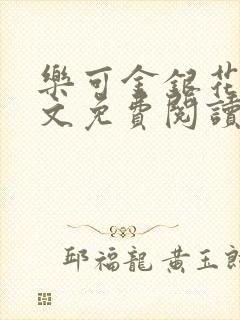 樂可金銀花
文免費閱讀
邱福龍 黃玉郎